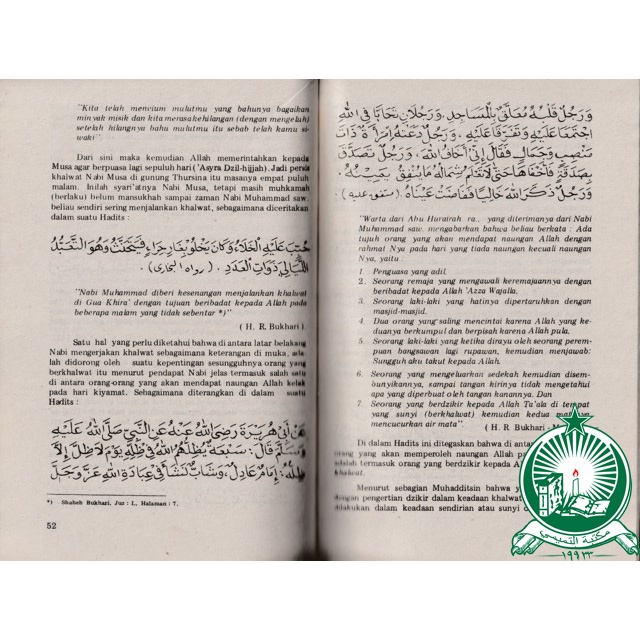 "Kita telah mencium mulutmu yang bahunya bagaikan
minyak misik dan kita merasa kehilangan (dengan mengeluh)
setelah hilangnya bahu mulutmu itu sebab telah kamu si-
waki"
Dari sini maka kemudian Allah memerintahkan kepada
Musa agar berpuasa lagi sepuluh hari ('Asyra Dzil-hijjah). Jadi
khalwat Nabi Musa di gunung Thursina itu masanya empat puluh
malam. Inilah syari'atnya Nabi Musa, tetapi masih muhkamah
(berlaku) belum mansukhah sampai zaman Nabi Muhammad saw.
beliau sendiri sering menjalankan khalwat, sebagaimana diceritakan
dalam suatu Hadits :
حُبِّبَ عَلَيْهِ الْخَلَاءُ وَكَانَ يَخْلُو بِغَارِ حِرَاءٍ فَيَتَحَنَّثُ وَهُوَ التَّعَبُّدُ
اللَّيَالِيَ ذَوَاتِ الْعَدَدِ . (رواه البخارى)
"Nabi Muhammad diberi kesenangan menjalankan khalwat
di Gua Khira' dengan tujuan beribadat kepada Allah pada
beberapa malam yang tidak sebentar *)"
( H. R. Bukhari ).
Satu hal yang perlu diketahui bahwa di antara latar belakang
Nabi mengerjakan khalwat sebagaimana keterangan di muka, adalah
didorong oleh suatu kepentingan sesungguhnya orang yang
berkhalwat itu menurut pendapat Nabi jelas termasuk salah satu
di antara orang-orang yang akan mendapat naungan Allah kelak
pada hari kiyamat. Sebagaimana diterangkan di dalam suatu
Hadits :
عَنْ أَبِى هُرَيْرَةَ رَضِىَ اللهُ عَنْهُ عَنِ النَّبِيِّ صَلَّى اللهُ عَلَيْهِ
وَسَلَّمَ قَالَ : سَبْعَةٌ يُظِلُّهُمُ اللهُ فِى ظِلِّهِ يَوْمَ لَا ظِلَّ إِلَّا
ظِلُّهُ : إِمَامٌ عَادِلٌ، وَشَابٌّ نَشَأَ فِى عِبَادَةِ اللهِ عَزَّ وَجَلَّ
*) Shaheh Bukhari, Juz : I., Halaman : 7.
52
وَرَجُلٌ قَلْبُهُ مُعَلَّقٌ بِالْمَسَاجِدِ، وَرَجُلَانِ تَحَابَّا فِى اللهِ
اجْتَمَعَا عَلَيْهِ وَتَفَرَّقَا عَلَيْهِ، وَرَجُلٌ دَعَتْهُ امْرَأَةٌ ذَاتُ
مَنْصِبٍ وَجَمَالٍ فَقَالَ إِنِّى أَخَافُ اللهَ، وَرَجُلٌ تَصَدَّقَ
بِصَدَقَةٍ فَأَخْفَاهَا حَتَّى لَا تَعْلَمَ شِمَالُهُ مَا يُنْفِقُ يَمِيْنُهُ،
وَرَجُلٌ ذَكَرَ اللهَ خَالِيًا فَفَاضَتْ عَيْنَاهُ (متفق عليه)
"Warta dari Abu Hurairah ra., yang diterimanya dari Nabi
Muhammad saw. mengabarkan bahwa beliau berkata : Ada
tujuh orang yang akan mendapat naungan Allah dengan
rahmat Nya pada hari yang tiada naungan kecuali naungan
Nya, yaitu :
1. Penguasa yang adil.
2. Seorang remaja yang mengawali keremajaannya dengan
beribadat kepada Allah 'Azza Wajalla.
3. Seorang laki-laki yang hatinya dipertaruhkan dengan
masjid-masjid.
4. Dua orang yang saling mencintai karena Allah yang ke-
duanya berkumpul dan berpisah karena Allah pula.
5. Seorang laki-laki yang ketika dirayu oleh seorang perem-
puan bangsawan lagi rupawan, kemudian menjawab:
Sungguh aku takut kepada Allah.
6. Seorang yang mengeluarkan sedekah kemudian disem-
bunyikannya, sampai tangan kirinya tidak mengetahui
apa yang diperbuat oleh tangan kanannya. Dan
7. Seorang yang berdzikir kepada Allah Ta'ala di tempat
yang sunyi (berkhalwat) kemudian kedua
mencucurkan air mata"
( H. R. Bukhari
Di dalam Hadits ini ditegaskan bahwa di antara
orang yang akan memperoleh naungan Allah
adalah termasuk orang yang berdzikir kepada Allah
khalwat.
Menurut sebagian Muhadditsin bahwa
dengan pengertian dzikir dalam keadaan khalwat
dilakukan dalam keadaan sendirian atau sunyi
مكتبة التميمي
١٩٩٣